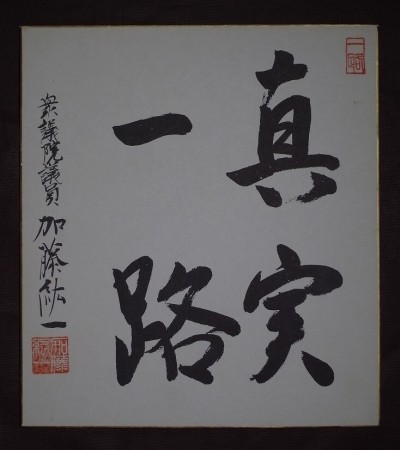 真実
一路
衆議院議員 加藤紘一